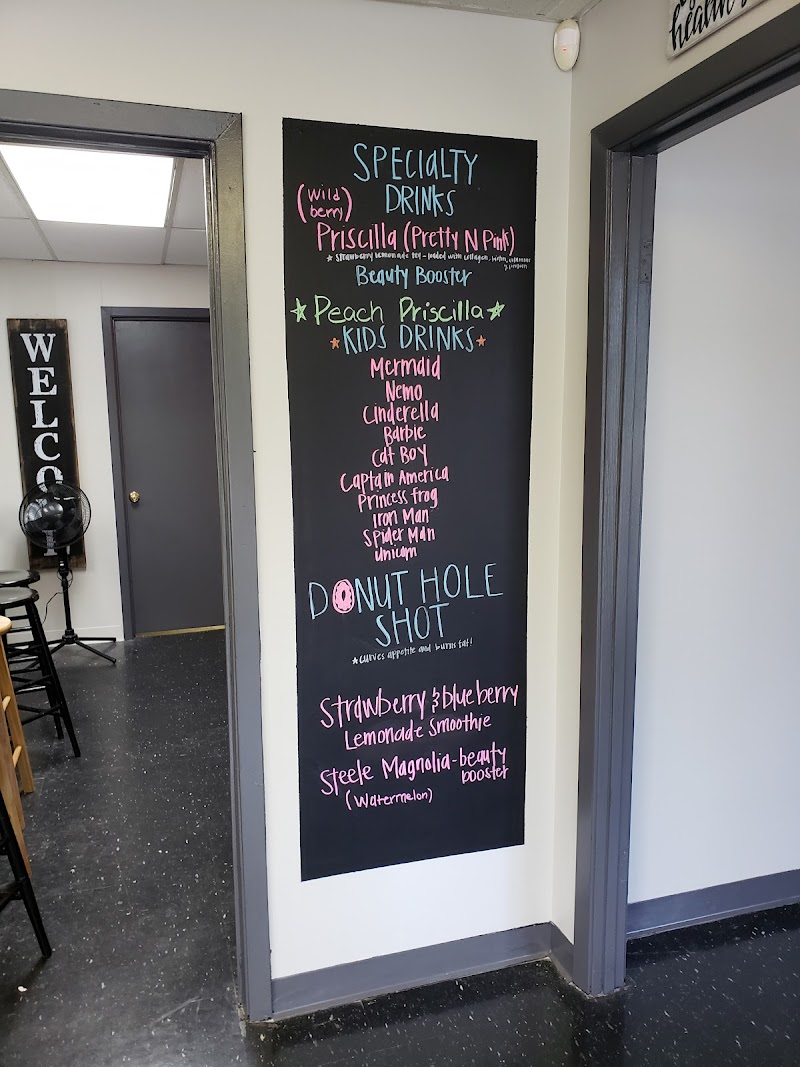 healthier
WELCO
SPECIALTY
DRINKS
(Wild
berry)
Priscilla (Pretty N Pink)
* strawberry lemonade tea - loaded with collagen, biotin,
Beauty Booster
☆ Peach Priscilla ☆
☆ KIDS DRINKS ☆
Mermaid
Nemo
Cinderella
Barbie
Cat Boy
Captain America
Princess frog
Iron Man
Spider Man
Unicorn
DONUT HOLE
SHOT
★ curves appetite and burns fat!
Strawberry & blueberry
Lemonade Smoothie
Steele Magnolia - beauty
booster
(Watermelon)